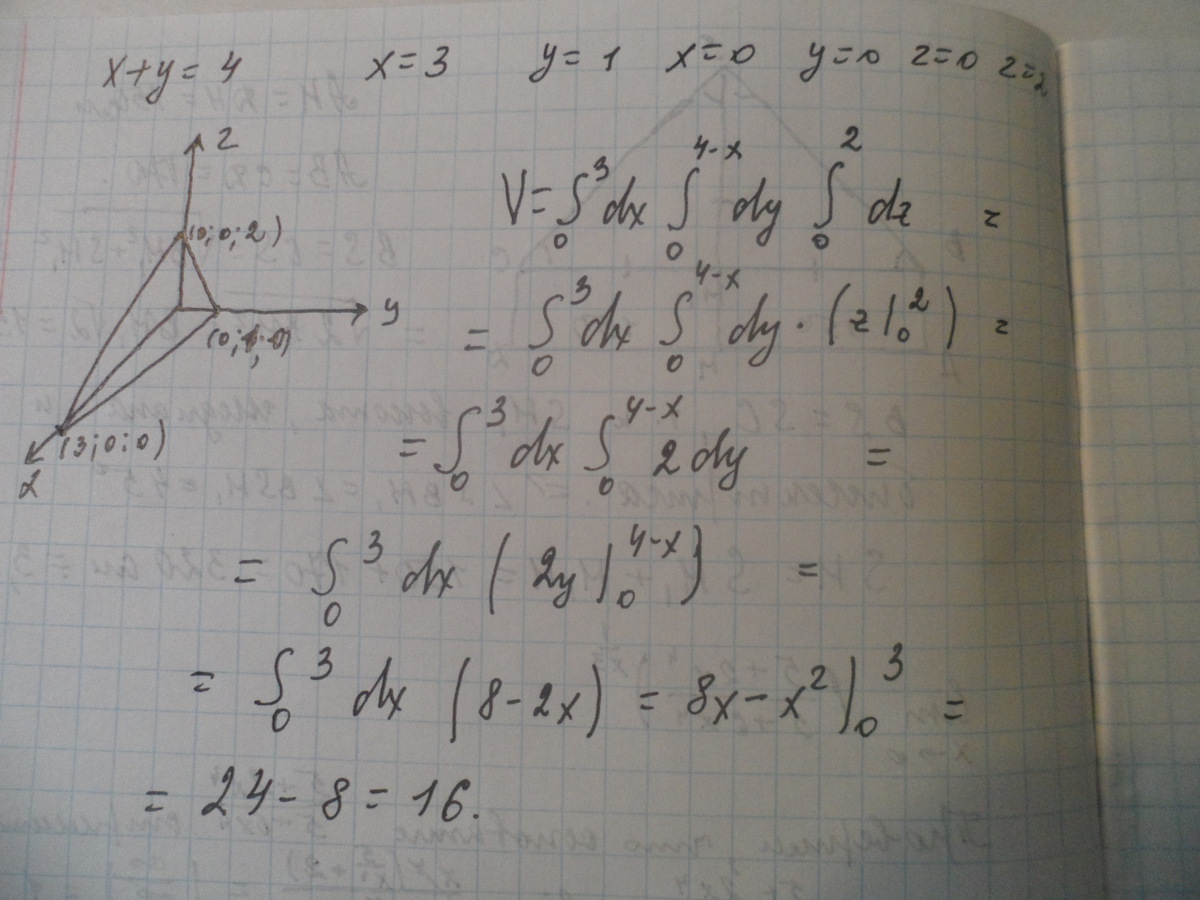 x+y=4 x=3 y=1 x=0 y=0 z=0 z=2
z
(0;0;2)
y
(0;1;0)
(3;0;0)
2
V=∫₀³dx ∫₀⁴⁻ˣ dy ∫₀² dz =
= ∫₀³dx ∫₀⁴⁻ˣ dy·(z|₀²) =
= ∫₀³ dx ∫₀⁴⁻ˣ 2dy =
= ∫₀³ dx (2y|₀⁴⁻ˣ) =
= ∫₀³ dx (8-2x) = 8x-x²)|₀³ =
= 24-8=16.